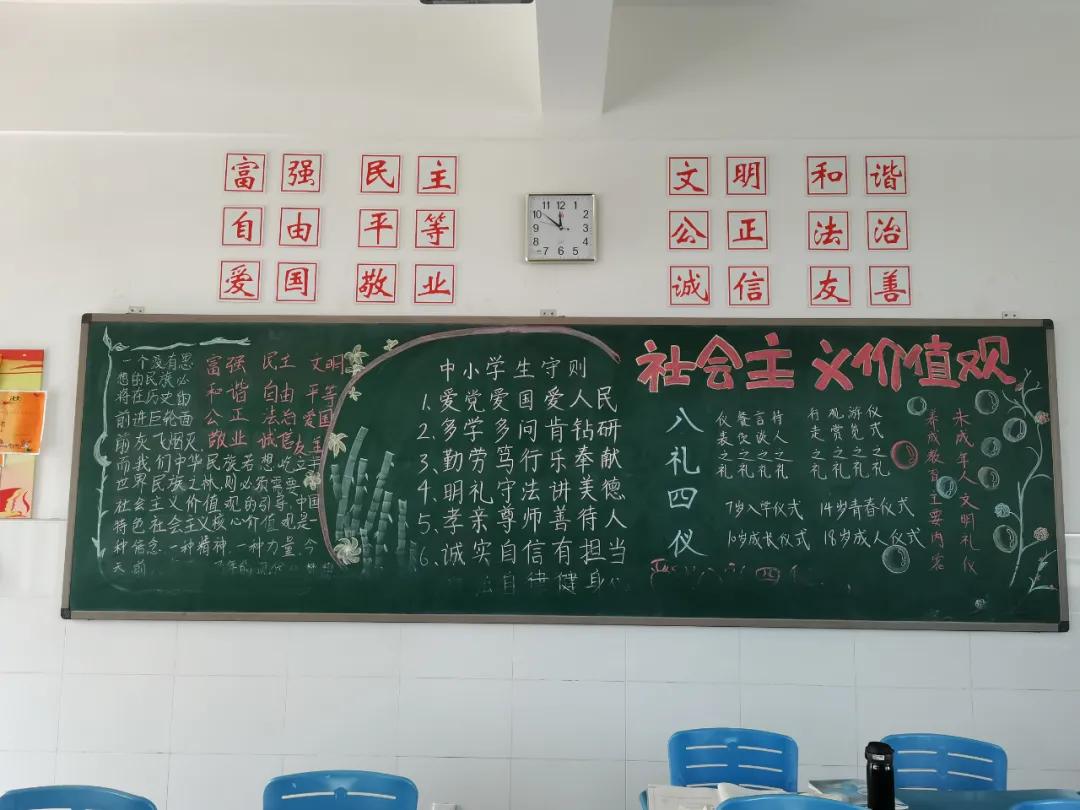 富强 民主
自由 平等
爱国 敬业
文明 和谐
公正 法治
诚信 友善
11 12 1
10 2
9 3
8 4
7 6 5
一个没有思
想的民族必
将在历史的
前进巨轮面
前灰飞烟灭
而我们中华民族若想屹立于
世界民族之林,则必须需要
社会主义价值观的引导,中国
特色社会主义核心价值观是一
种信念,一种精神,一种力量,今
天
富强 民主 文明
和谐 自由 平等
公正 法治 爱国
敬业 诚信 友善
中小学生守则
1.爱党爱国爱人民
2.多学多问肯钻研
3.勤劳笃行乐奉献
4.明礼守法讲美德
5.孝亲尊师善待人
6.诚实自信有担当
自律健身
社会主义价值观
八礼四仪
仪表之礼
餐饮之礼
言谈之礼
待人之礼
行走之礼
观赏之礼
游览之礼
仪式之礼
7岁入学仪式 14岁青春仪式
10岁成长仪式 18岁成人仪式
未成年人文明礼仪
养成教育主要内容